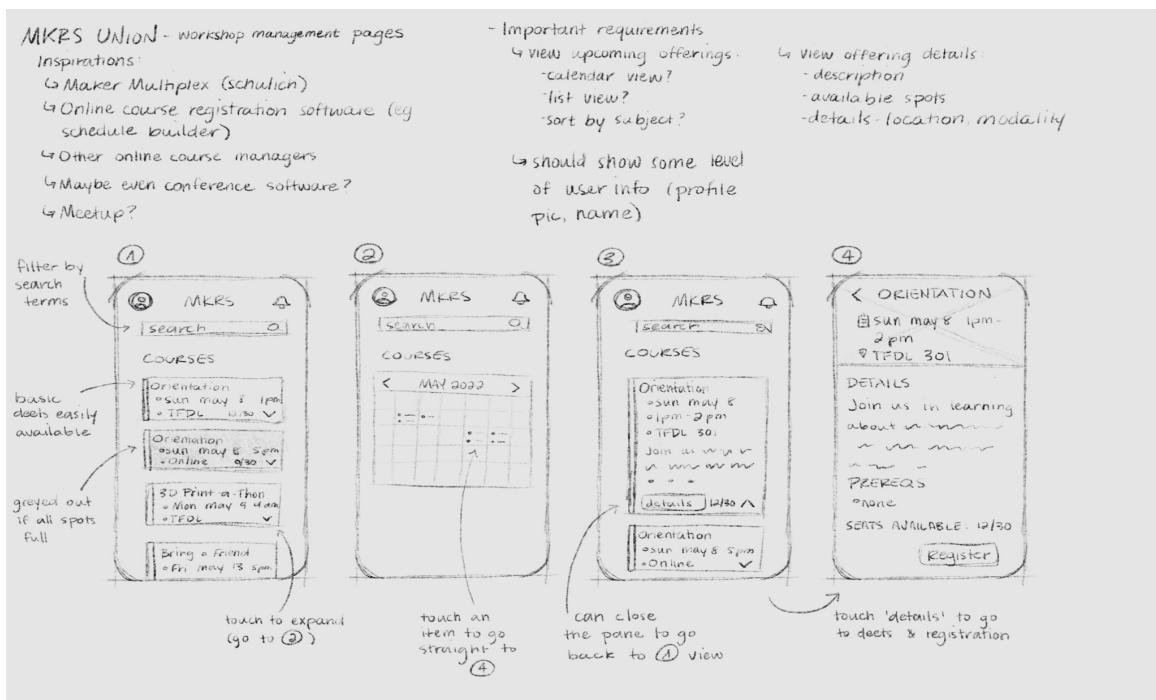 MKRS UNION - workshop management pages
Inspirations:
↳ Maker Multiplex (schulich)
↳ Online course registration software (eg
schedule builder)
↳ Other online course managers
↳ Maybe even conference software?
↳ Meetup?
- Important requirements
↳ view upcoming offerings:
-calendar view?
-list view?
-sort by subject?
↳ should show some level
of user info (profile
pic, name)
↳ view offering details:
- description
-available spots
-details - location, modality
filter by
search
terms
basic
deets easily
available
greyed out
if all spots
full
1
MKRS
search
COURSES
Orientation
Sun may 8 1pm
TFDL 12/30
Orientation
sun may 8 5pm
Online 0/30
3D Print-a-Thon
Mon may 9 9am
TFDL
Bring a Friend
Fri May 13 5pm
touch to expand
(go to 2)
2
MKRS
search
COURSES
< MAY 2022 >
touch an
item to go
straight to
4
3
MKRS
search
COURSES
Orientation
sun may 8
1pm-2pm
TFDL 301
Join us
details 12/30
Orientation
sun may 8 5pm
Online
can close
the pane to go
back to 1 view
4
< ORIENTATION
sun may 8 1pm-
2pm
TFDL 301
DETAILS
Join us in learning
about
PREREQS
none
SEATS AVAILABLE: 12/30
Register
touch 'details' to go
to deets & registration